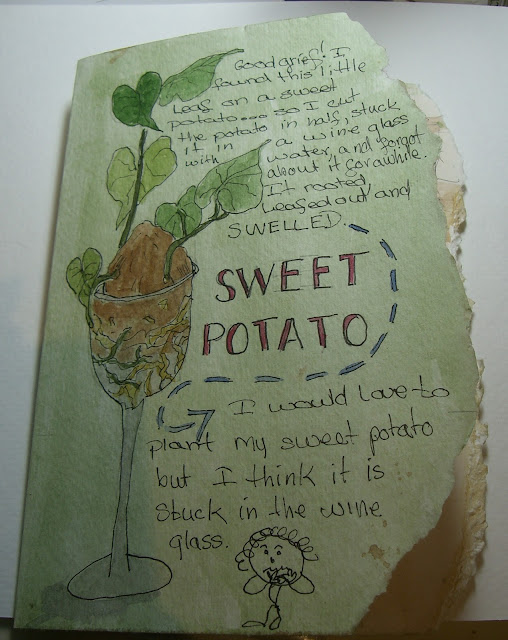 Good grief! I
found this little
leaf on a sweet
potato.... so I cut
the potato in half, stuck
it in a wine glass
with water, and forgot
about it for awhile.
It rooted,
leafed out and
SWELLED.
SWEET
POTATO
I would love to
plant my sweet potato
but I think it is
stuck in the wine
glass.